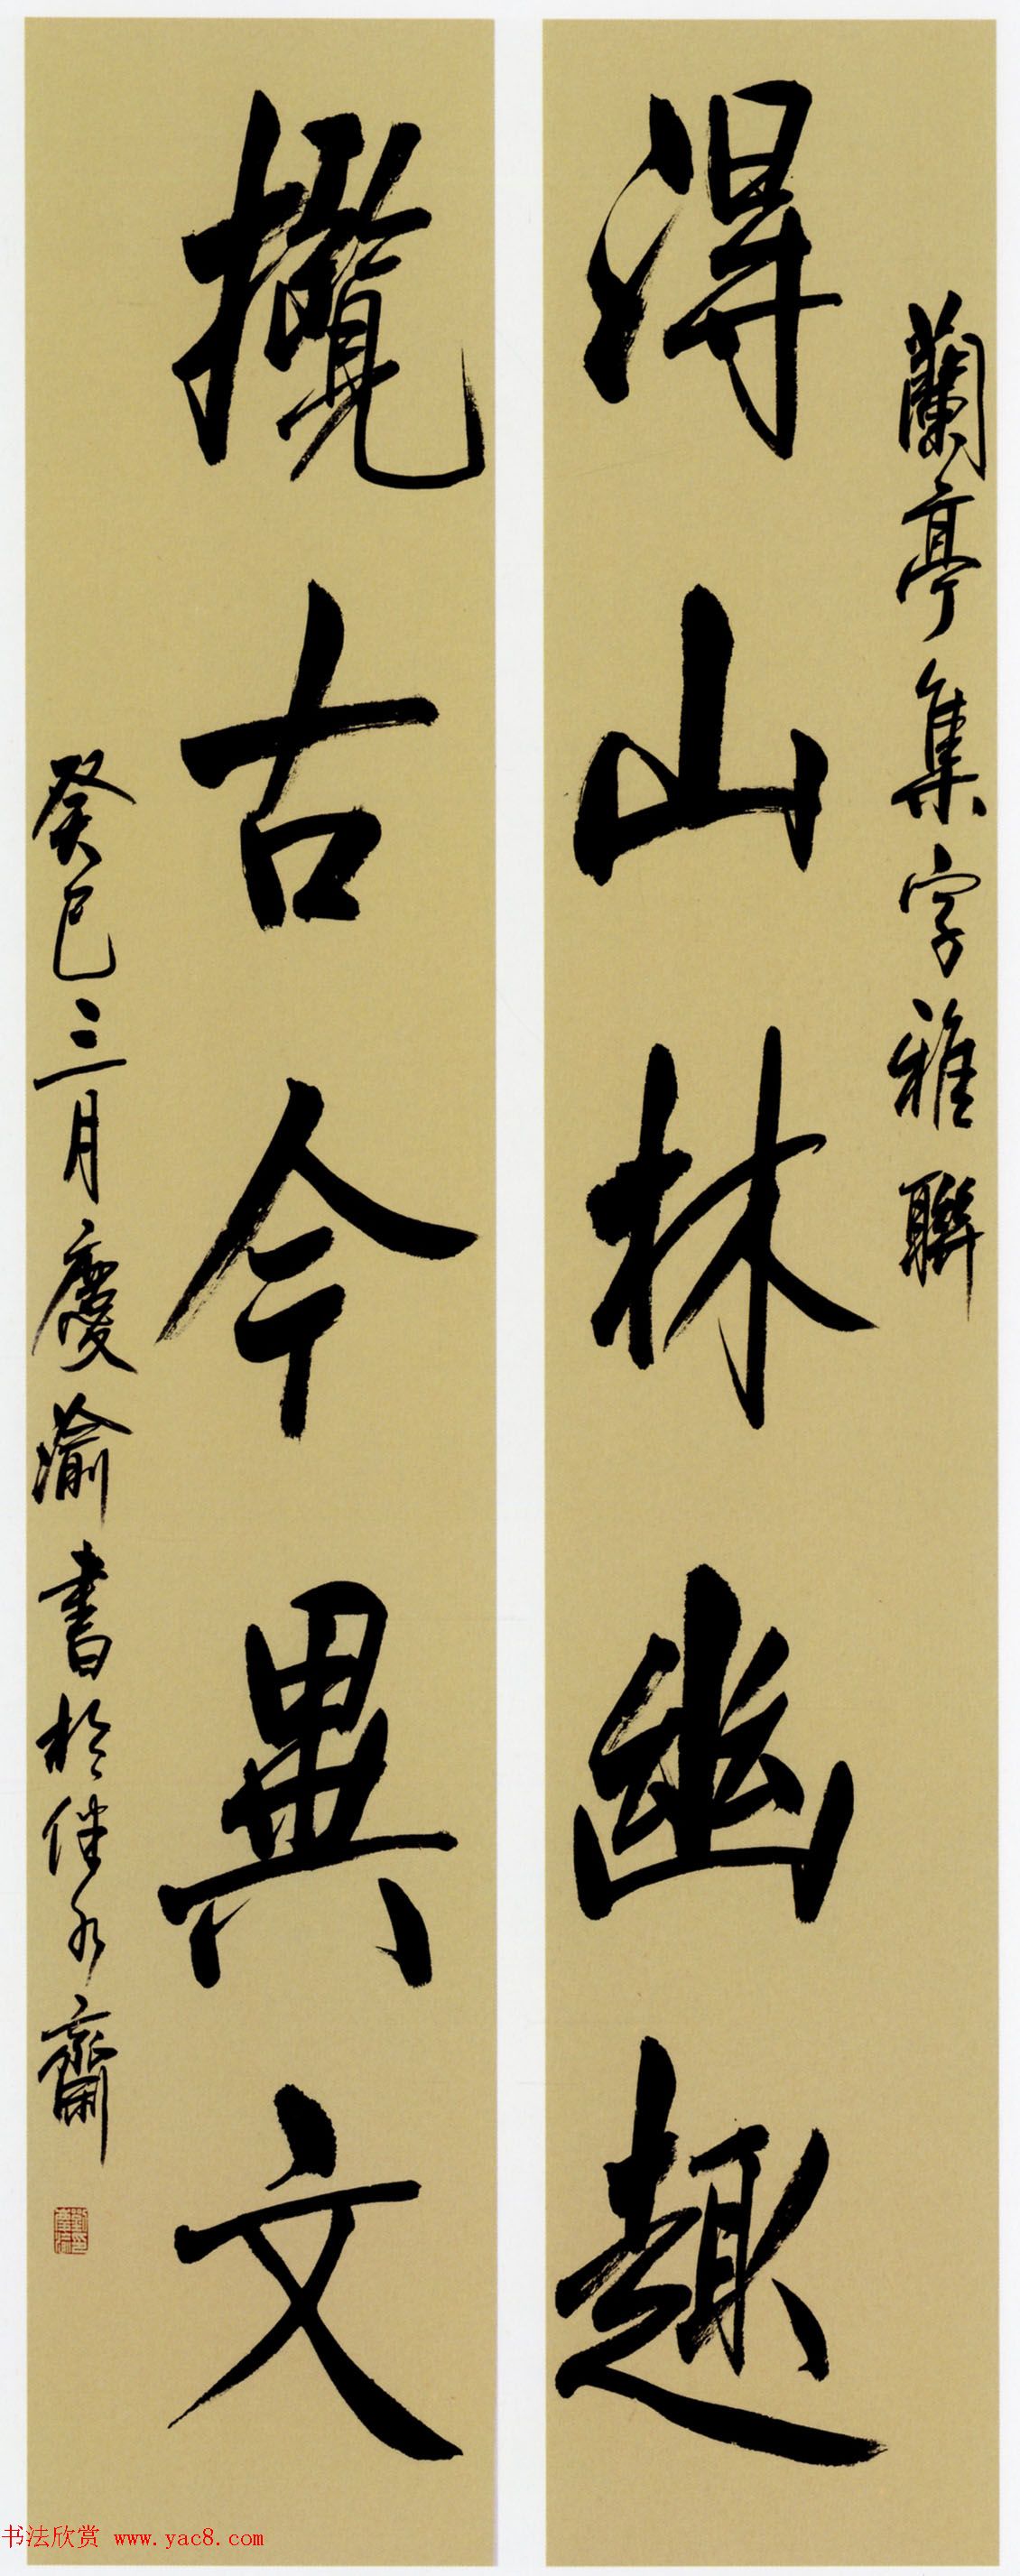 蘭亭集字雅聯
得山林幽趣
攬古今異文
癸巳三月慶渝書於伴水齋
书法欣赏 www.yac8.com